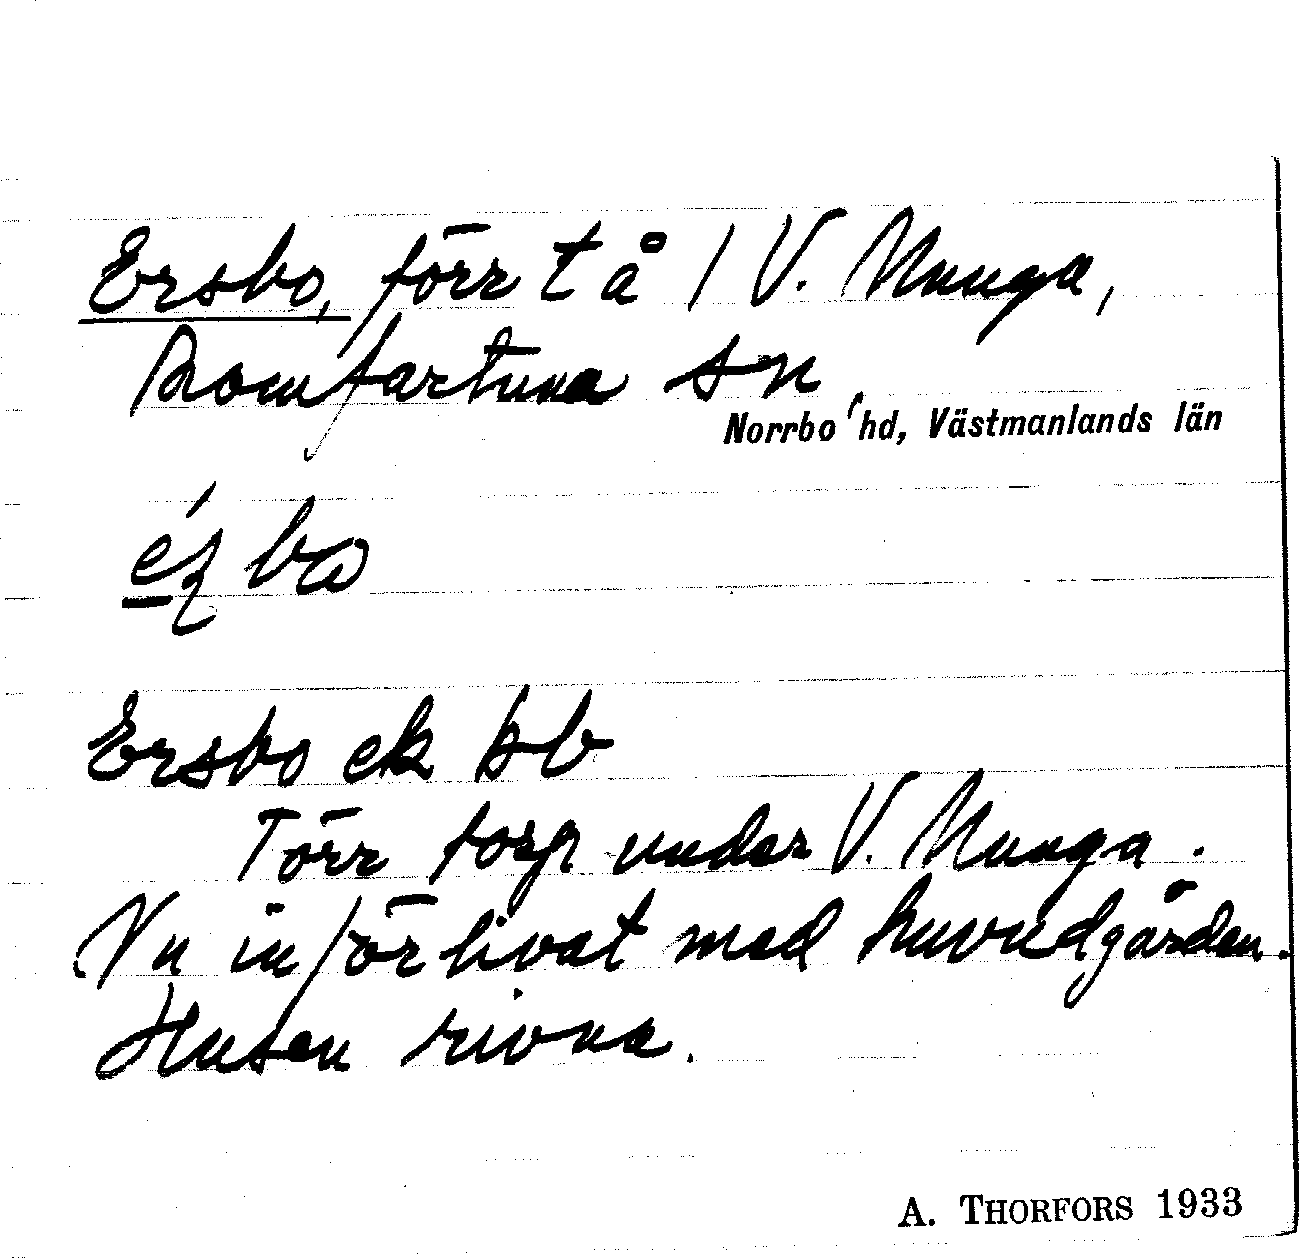 Ersbo, förr t å / V. Munga,
Romfartuna sn
Norrbo hd, Västmanlands län
ézbω
Ersbo ek sb
Förr torp under V. Munga.
Nu införlivat med huvudgården.
Husen rivna.
A. THORFORS 1933